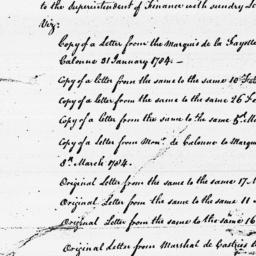 to the Superintendent of Finance with sundry
Viz:
Copy of a Letter from the Marquis de la Fayette
Calonne 31 January 1784. —
Copy of a letter from the same to the same 10
Copy of a letter from the same to the same 26
Copy of a Letter from the same to the same 5th
Copy of a Letter from Monr. de Calonne to
8th March 1784.
Original Letter from the same to the same 17
Original Letter from the same to the same 11
Original Letter from the same to the same 16
Original Letter from Marshal de Castries